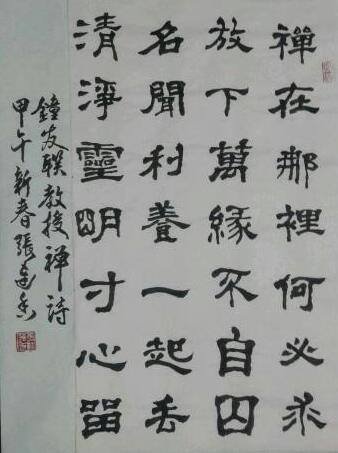 禪在那裡何必求
放下萬緣不自囚
名聞利養一起丟
清淨靈明寸心留
鐘友联教授禅诗
甲午新春張